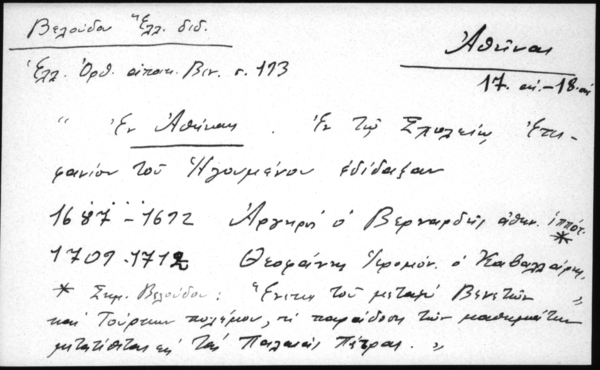 Βελούδου Ἑλλ. διδ.
Ἀθῆναι
Ἑλλ. Ὀρθ. ἀποικ. Βεν. σ. 193
17. αἰ. - 18. αἰ
" Ἐν Ἀθήναις . Ἐν τῷ Σχολείῳ Ἐπι-
φανίου τοῦ Ἡγουμένου ἐδίδαξαν
1687 - 1692 ὁ Βερναρδῆς ἀθην. ἱππότ.
*
1709 - 1712 Θεοφάνης Ἱερομόν. ὁ Καβαλλάρης,
* Σημ. Βελούδου: Ἕνεκα τοῦ μεταξὺ Βενετῶν "
καὶ Τούρκων πολέμου, ἡ παράδοση τῶν μαθημάτων
μετατίθεται εἰς τὰς Παλαιὰς Πάτρας. "